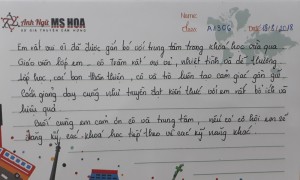 Anh Ngữ MS HOA
Name:
Class: A1306 Date: 18/8/2018
Em rất vui vì đã được gắn bó với trung tâm trong khóa học vừa qua
Giáo viên lớp em cô Trâm rất vui vẻ, nhiệt tình và dễ thương
lớp học, các bạn thân thiện, cô và trò luôn tạo cảm giác gần gũi
Cách giảng dạy cũng như truyền đạt kiến thức với em rất bổ ích và
hiệu quả
Cuối cùng em cảm ơn cô và trung tâm, nếu có cơ hội em sẽ
đăng ký các khóa học tiếp theo về các kỹ năng khác